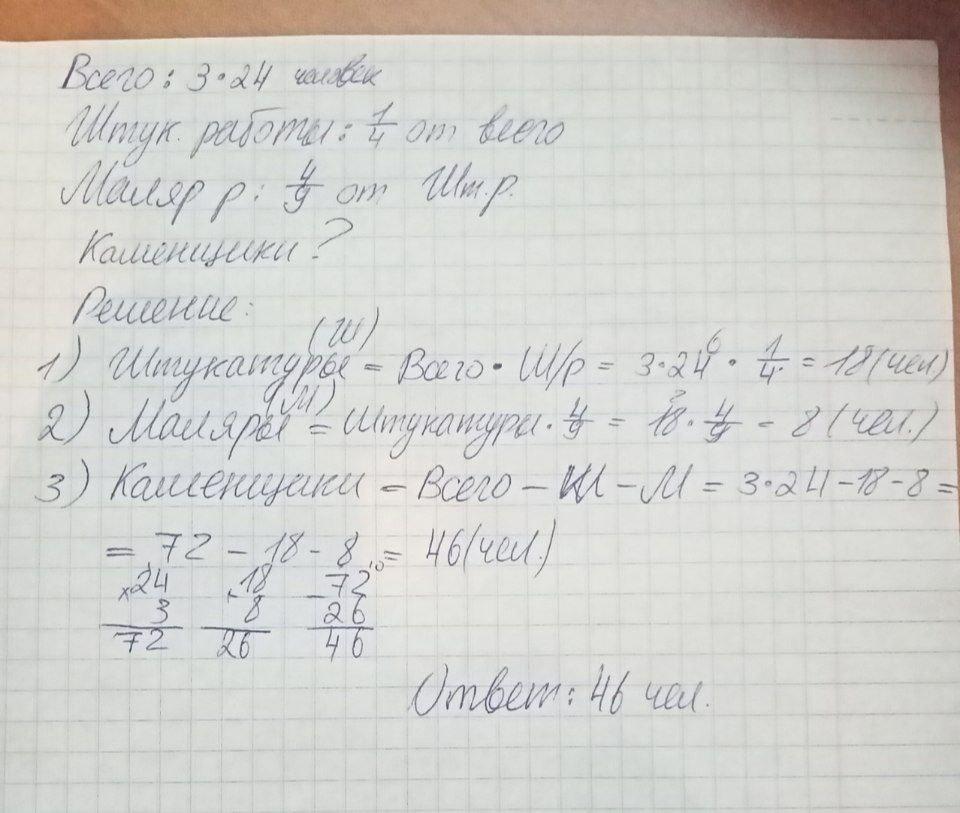 Всего: 3·24 человек
Штук. работы: 1/4 от всего
Маляр р: 4/9 от Шт.р.
Каменщики?
Решение:
1) Штукатуры (Ш) = Всего · Ш/р = 3·24 6 · 1/4 = 18 (чел)
2) Маляры (М) = Штукатуры · 4/9 = 18 2 · 4/9 = 8 (чел.)
3) Каменщики = Всего – Ш – М = 3·24–18–8 =
= 72 – 18 – 8 = 46 (чел.)
×24 +18 –72 10
3 8 26
72 26 46
Ответ: 46 чел.